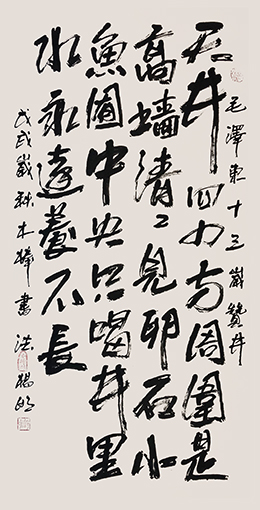 毛澤東十三歲贊井
天井四四方周圍是
高墻清〻見卵石小
魚囿中央只喝井里
水永遠養不長
戊戌歲秋木樟書